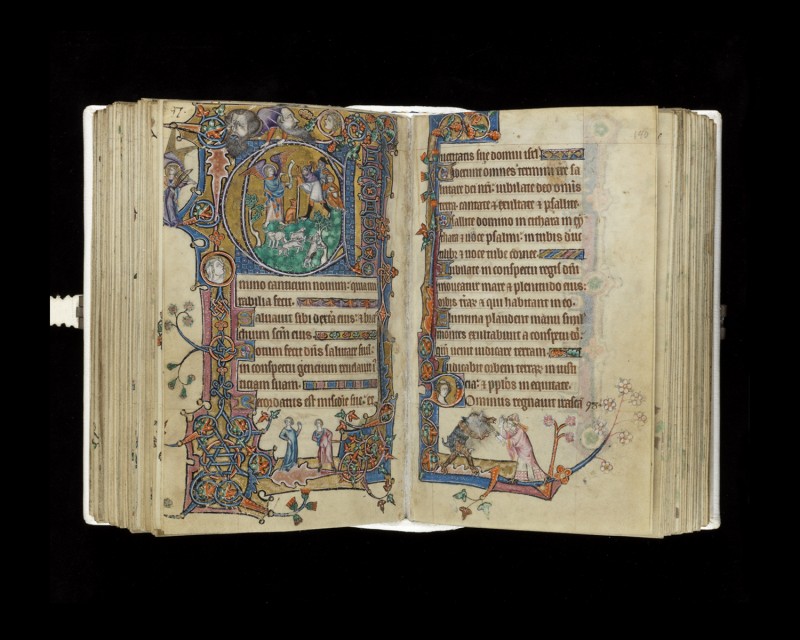 mino canticum nouum: quiam
rabilia fecit.
Saluauit sibi dextra eius: & bra
chium scm eius.
Notum fecit dns salutare suu:
in conspectu gencium reuelauit
ticiam suam.
Recordatus est misicordie sue: et
156
ueritatis sue domui isrl.
Uiderunt omnes termini tre sa
lutare dei nri: iubilate deo omis
terra: cantate & exultate & psallite.
Psallite domino in cithara in cy
thara & uoce psalmi: in tubis duc
tilibz & uoce tube cornee.
Iubilate in conspectu regis dni
moueatur mare & plenitudo eius:
orbis trar & qui habitant in eo.
Flumina plaudent manu simul
montes exultabunt a conspectu dni
qm uenit iudicare terram.
Iudicabit orbem terrar in iusti
cia: & pplos in equitate.
Dominus regnauit irascant